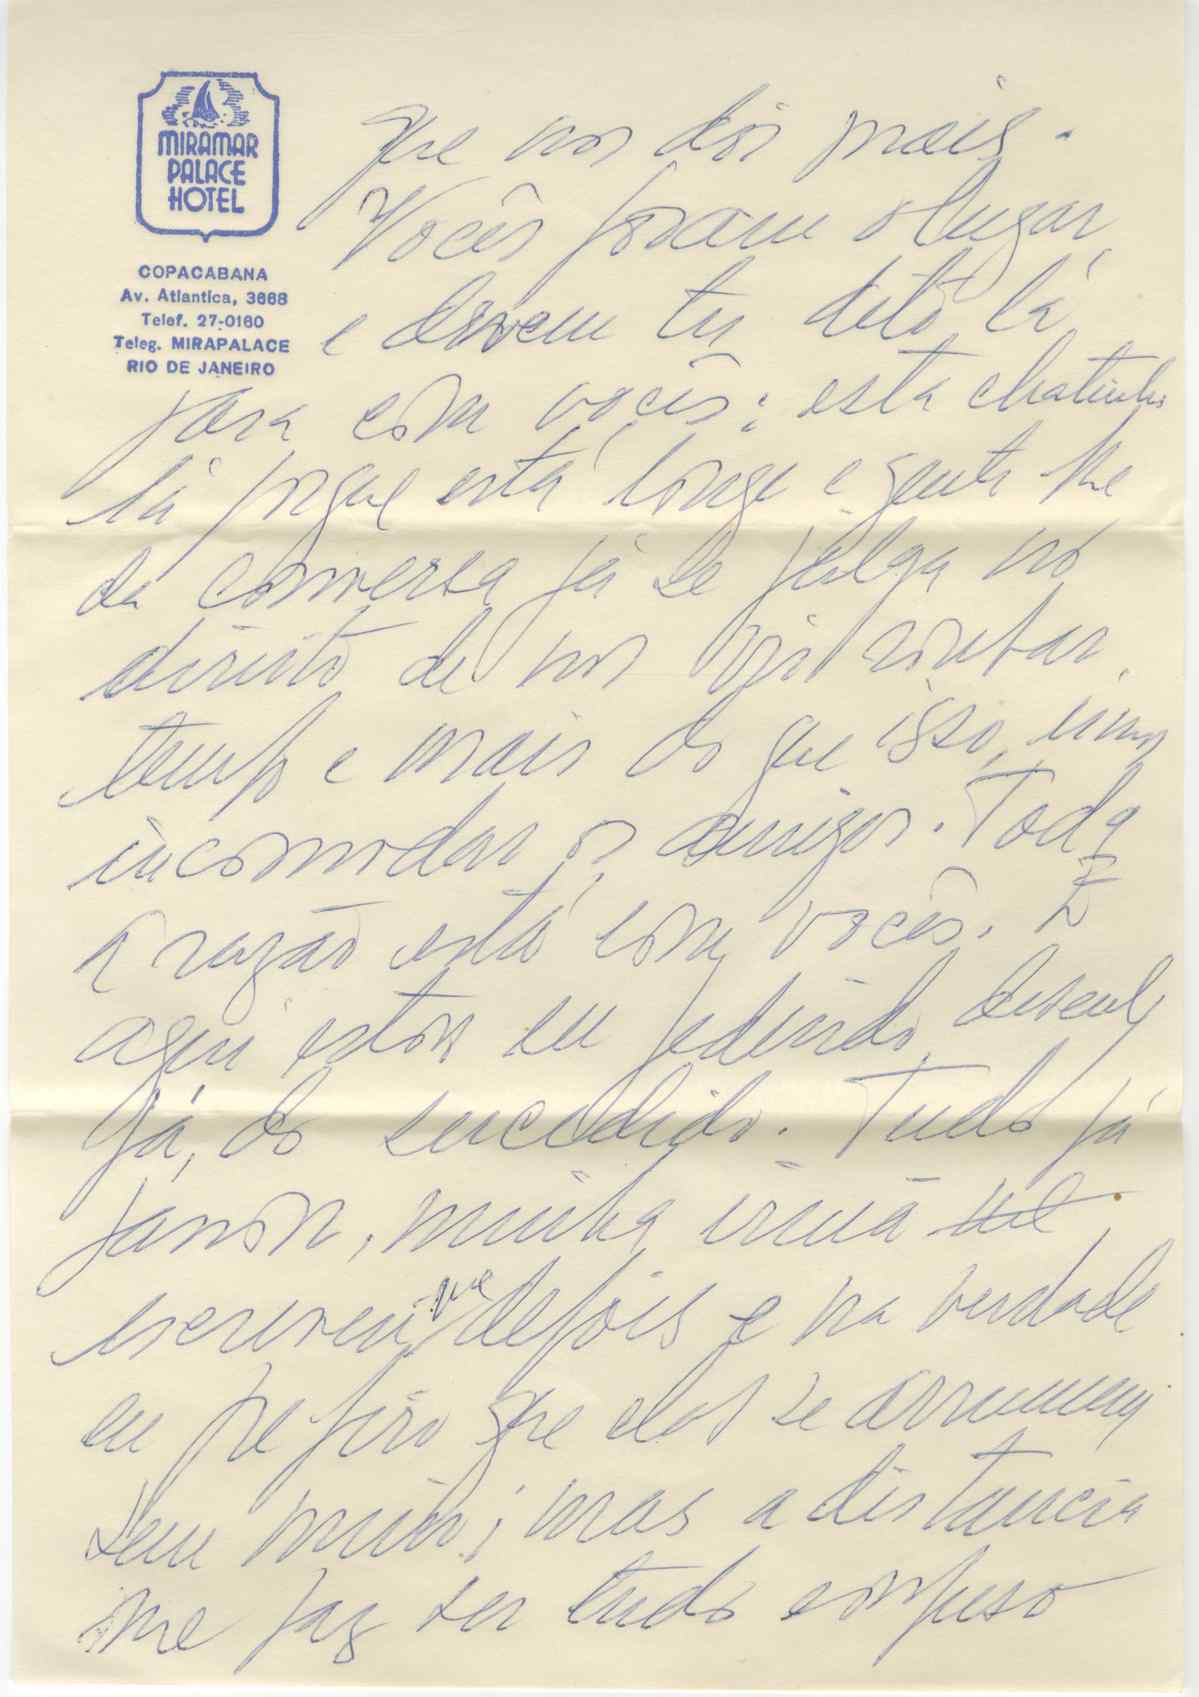 MIRAMAR
PALACE
HOTEL
COPACABANA
Av. Atlantica, 3668
Telef. 27-0160
Teleg. MIRAPALACE
RIO DE JANEIRO
que nos dois mais.
Vocês foram o lugar,
e devem ter dito lá
para com vocês: esta chatinha
lá porque está longe e gente que
dá conversa já se julga no
direito de nos vir roubar
tempo e mais do que isso,
incomodar os amigos. Toda
a razão está com vocês. E
aqui estou eu pedindo desculp
já, do sucedido. Tudo já
passou, minha irmã
escreveu-me depois e na verdade
eu prefiro que elas se arrumem
sem mim; mas a distancia
me faz ver tudo confuso